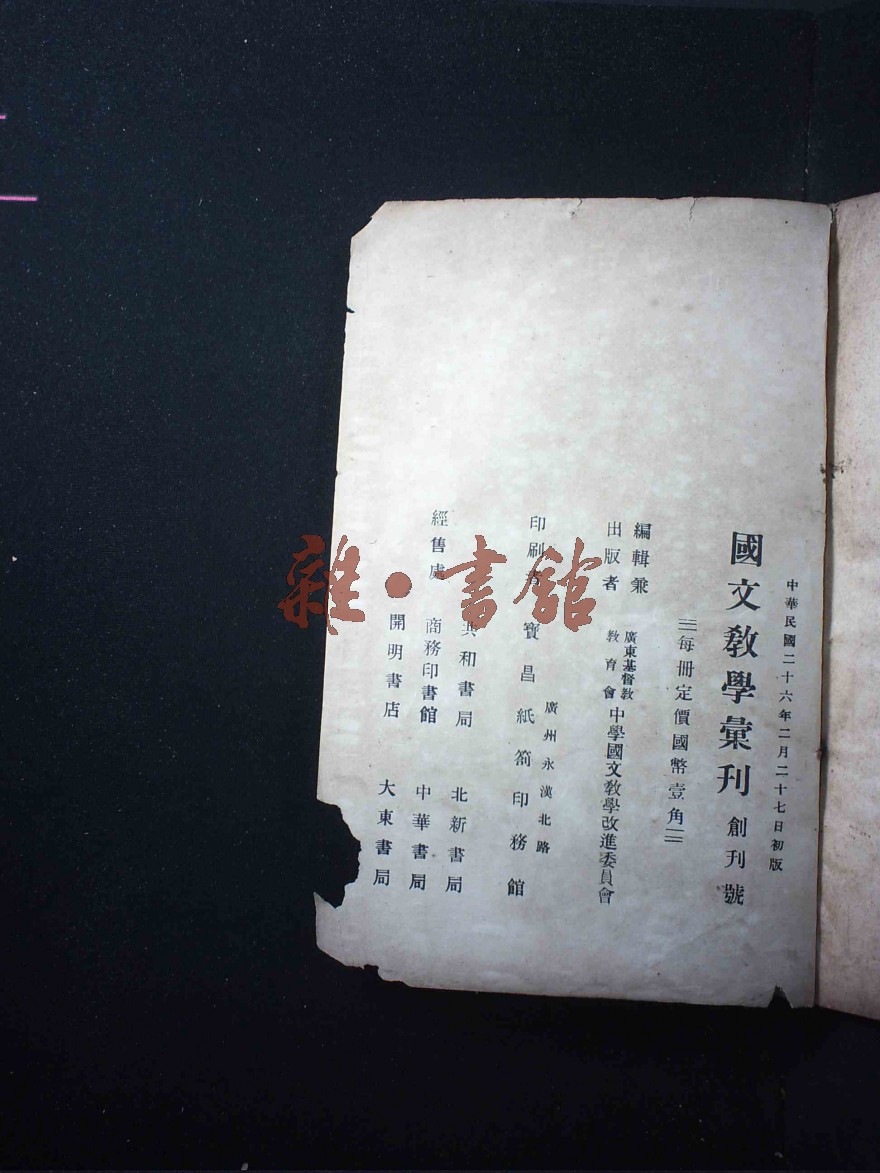 中華民國二十六年二月二十七日初版
國文教學彙刊 創刊號
每冊定價國幣壹角
編輯兼
出版者
廣東基督教
教育會
中學國文教學改進委員會
廣州永漢北路
印刷者 寶昌紙箚印務館
經售處
共和書局 北新書局
商務印書館 中華書局
開明書店 大東書局
雜·書館